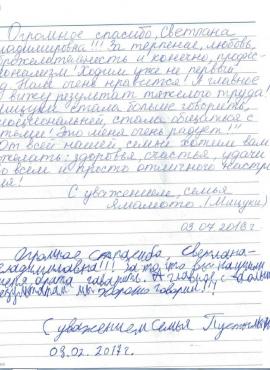 Огромное спасибо, Светлана
ладимировна!!! За терпение, любовь,
и конечно, профес-
ионализм! Ходим уже не первый
д. Нам очень нравится! И главное
вижу результат тяжелого труда!
стала больше говорить,
стала общаться с
Это меня очень радует!!!
От всей нашей семьи хотим вам
желать: здоровья, счастья, удачи
во всем и просто отличного настро
я!
С уважением, семья
Ямамото. (Мицуки)
03.07.2017г.
Огромное спасибо Светлана-
ладимировна!!! За то что вы научили
брата гаварить. А главное
мы хорошо говорим!!!
С уважением Семья
03.02.2017г.